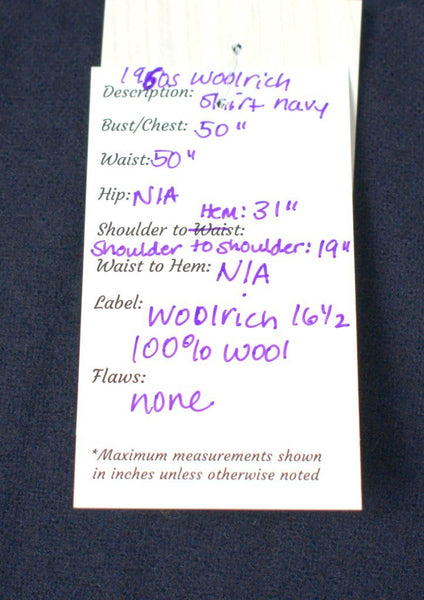 1960s Woolrich
Description: Shirt navy
Bust/Chest: 50"
Waist: 50"
Hip: N/A
Hem: 31"
Shoulder to Waist:
Shoulder to shoulder: 19"
Waist to Hem: N/A
Label: Woolrich 16 1/2
100% wool
Flaws:
none
*Maximum measurements shown
in inches unless otherwise noted